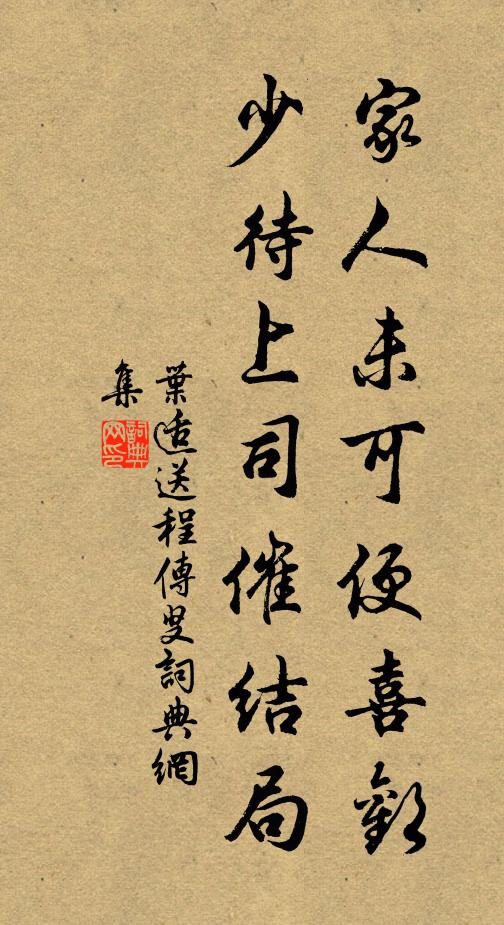 家人未可便喜歡
少待上司催結局
葉適送程傳叟詞典網
集
詞典網印